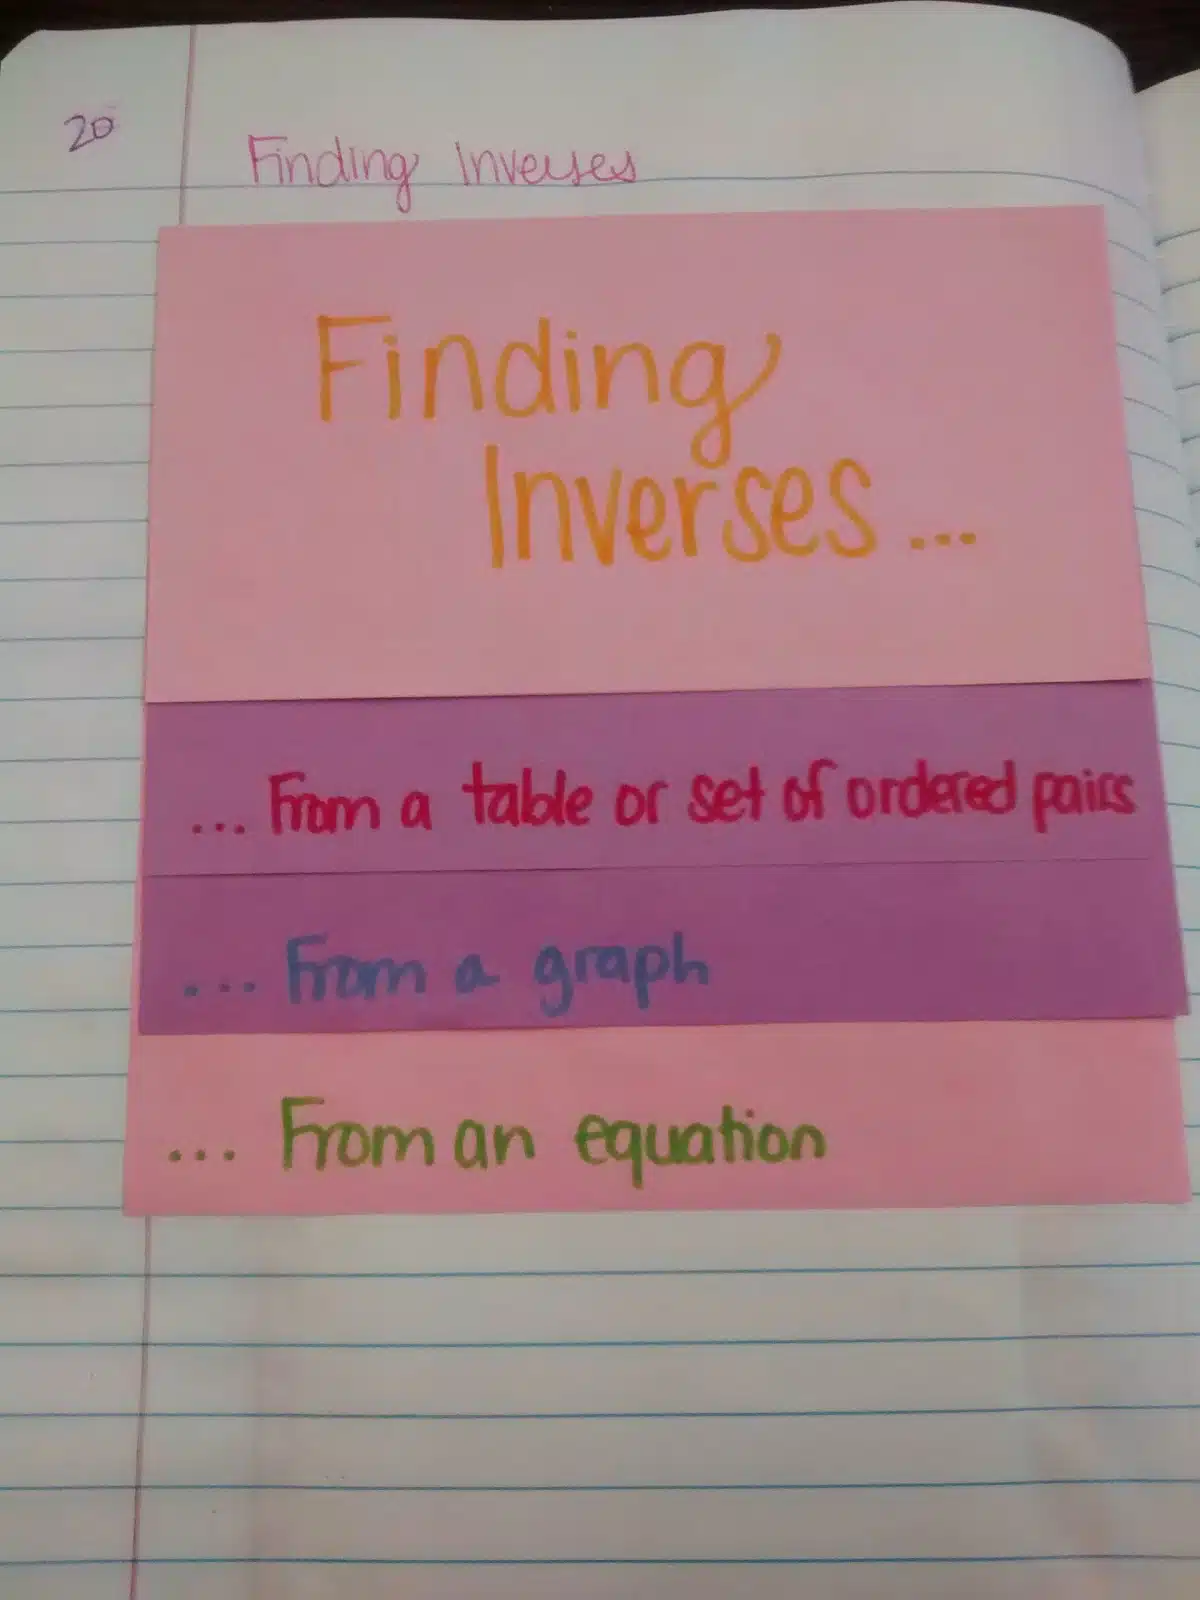 20
Finding Inverses
Finding
Inverses...
... From a table or set of ordered pairs
... From a graph
... From an equation